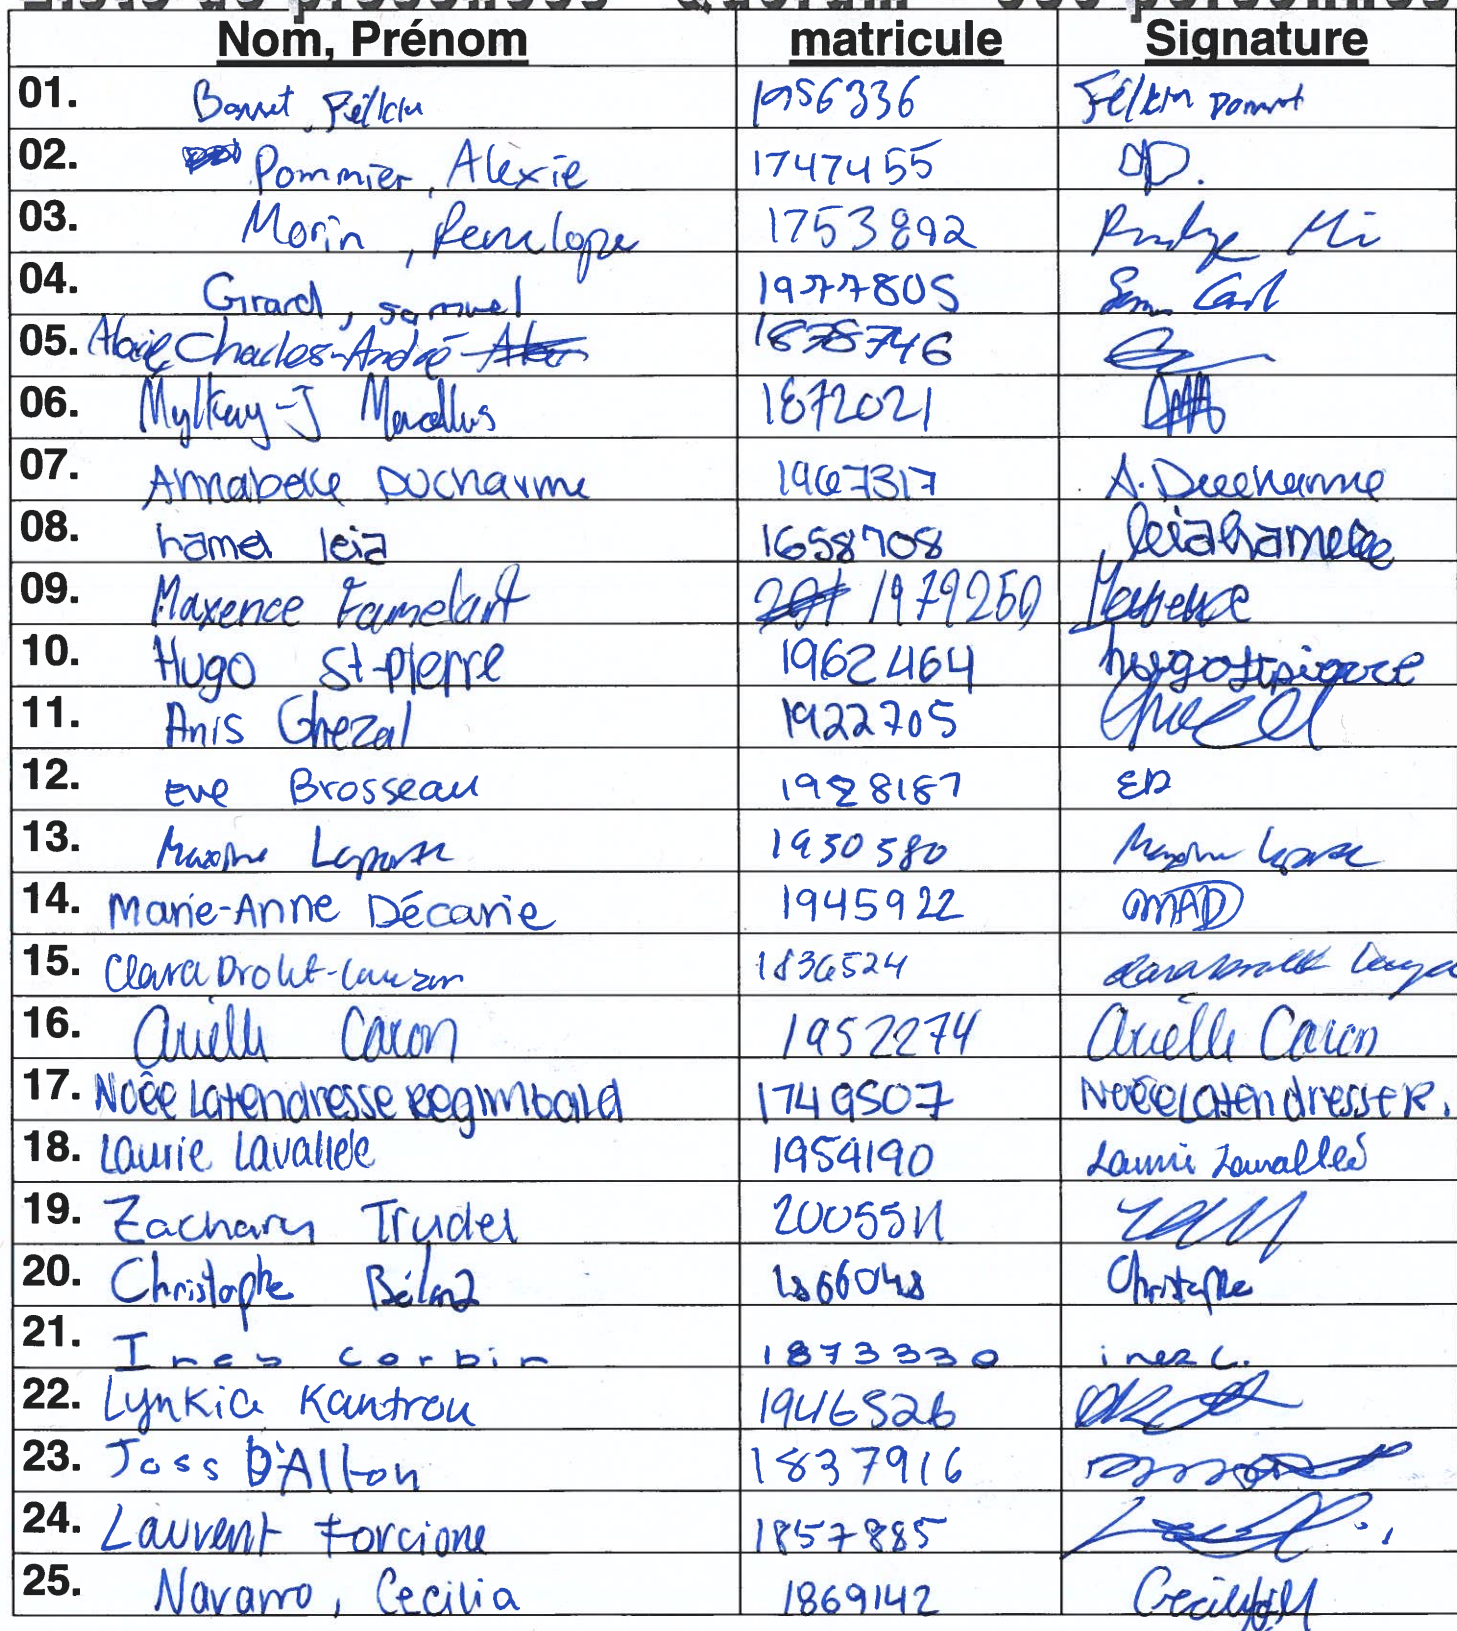 Liste de présences - Quorum - 350 personnes
Nom, Prénom matricule Signature
01. Bonnet, Félkin 1956336 Félkin Bonnet
02. Pommier, Alexie 1747455 AP.
03. Morin, Penelope 1753892
04. Girard, samuel 1977805
05. Charles-André 1878746
06. Mylkay-J Marcellus 1872021
07. Annabelle Ducharme 1967317 A. Ducharme
08. hamel leia 1658708 leiahamel
09. Maxence Famelart 1979250 Maxence
10. Hugo St-pierre 1962464 hugostpierre
11. Anis Ghezal 1922705
12. Eve Brosseau 1928187 EB
13. Maxime Laporte 1930580 Maxime Laporte
14. Marie-Anne Décarie 1945922 MAD
15. Clara Drolet-Lauzon 1836524
16. Arielle Caron 1952274 Arielle Caron
17. Noée Latendresse Regimbald 1749507 Noée Latendresse R.
18. Laurie Lavallée 1959190 Laurie Lavallée
19. Zachary Trudel 2005511
20. Christophe 1866048 Christophe
21. Ines corbin 1873330 ines c.
22. Lynkia Kantrou 1946526
23. Joss D'Alton 1837916
24. Laurent Forcione 1857885
25. Navarro, Cecilia 1869142